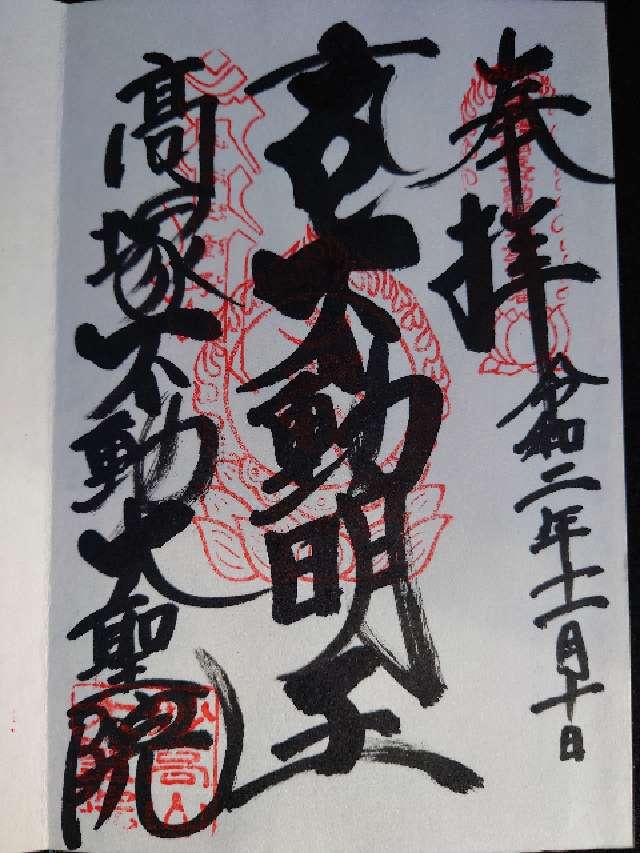 奉拝
令和二年十一月十日
不動明王
高塚不動大聖院